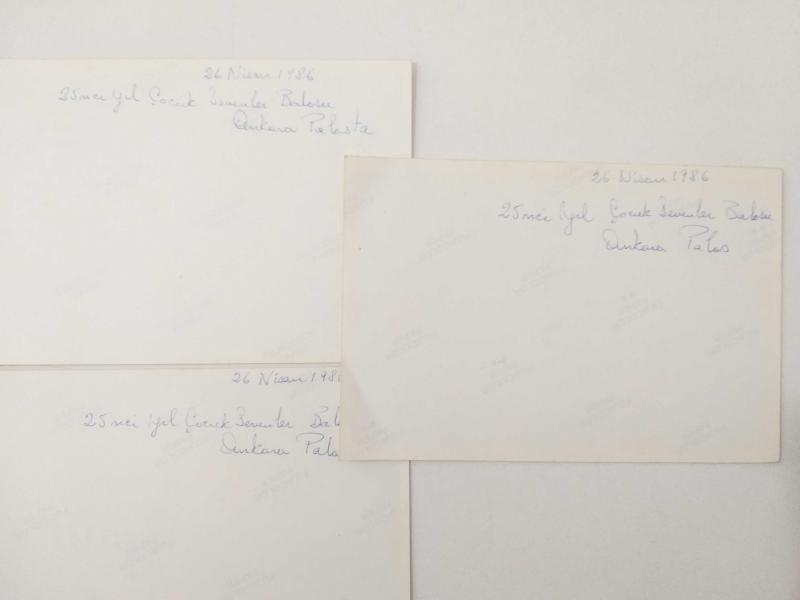 26 Nisan 1986
25nci yıl Çocuk Sevenler Balosu
Ankara Palasta
26 Nisan 1986
25nci yıl Çocuk Sevenler Balosu
Ankara Palas
26 Nisan 198
25nci yıl Çocuk Sevenler Bal
Ankara Pala